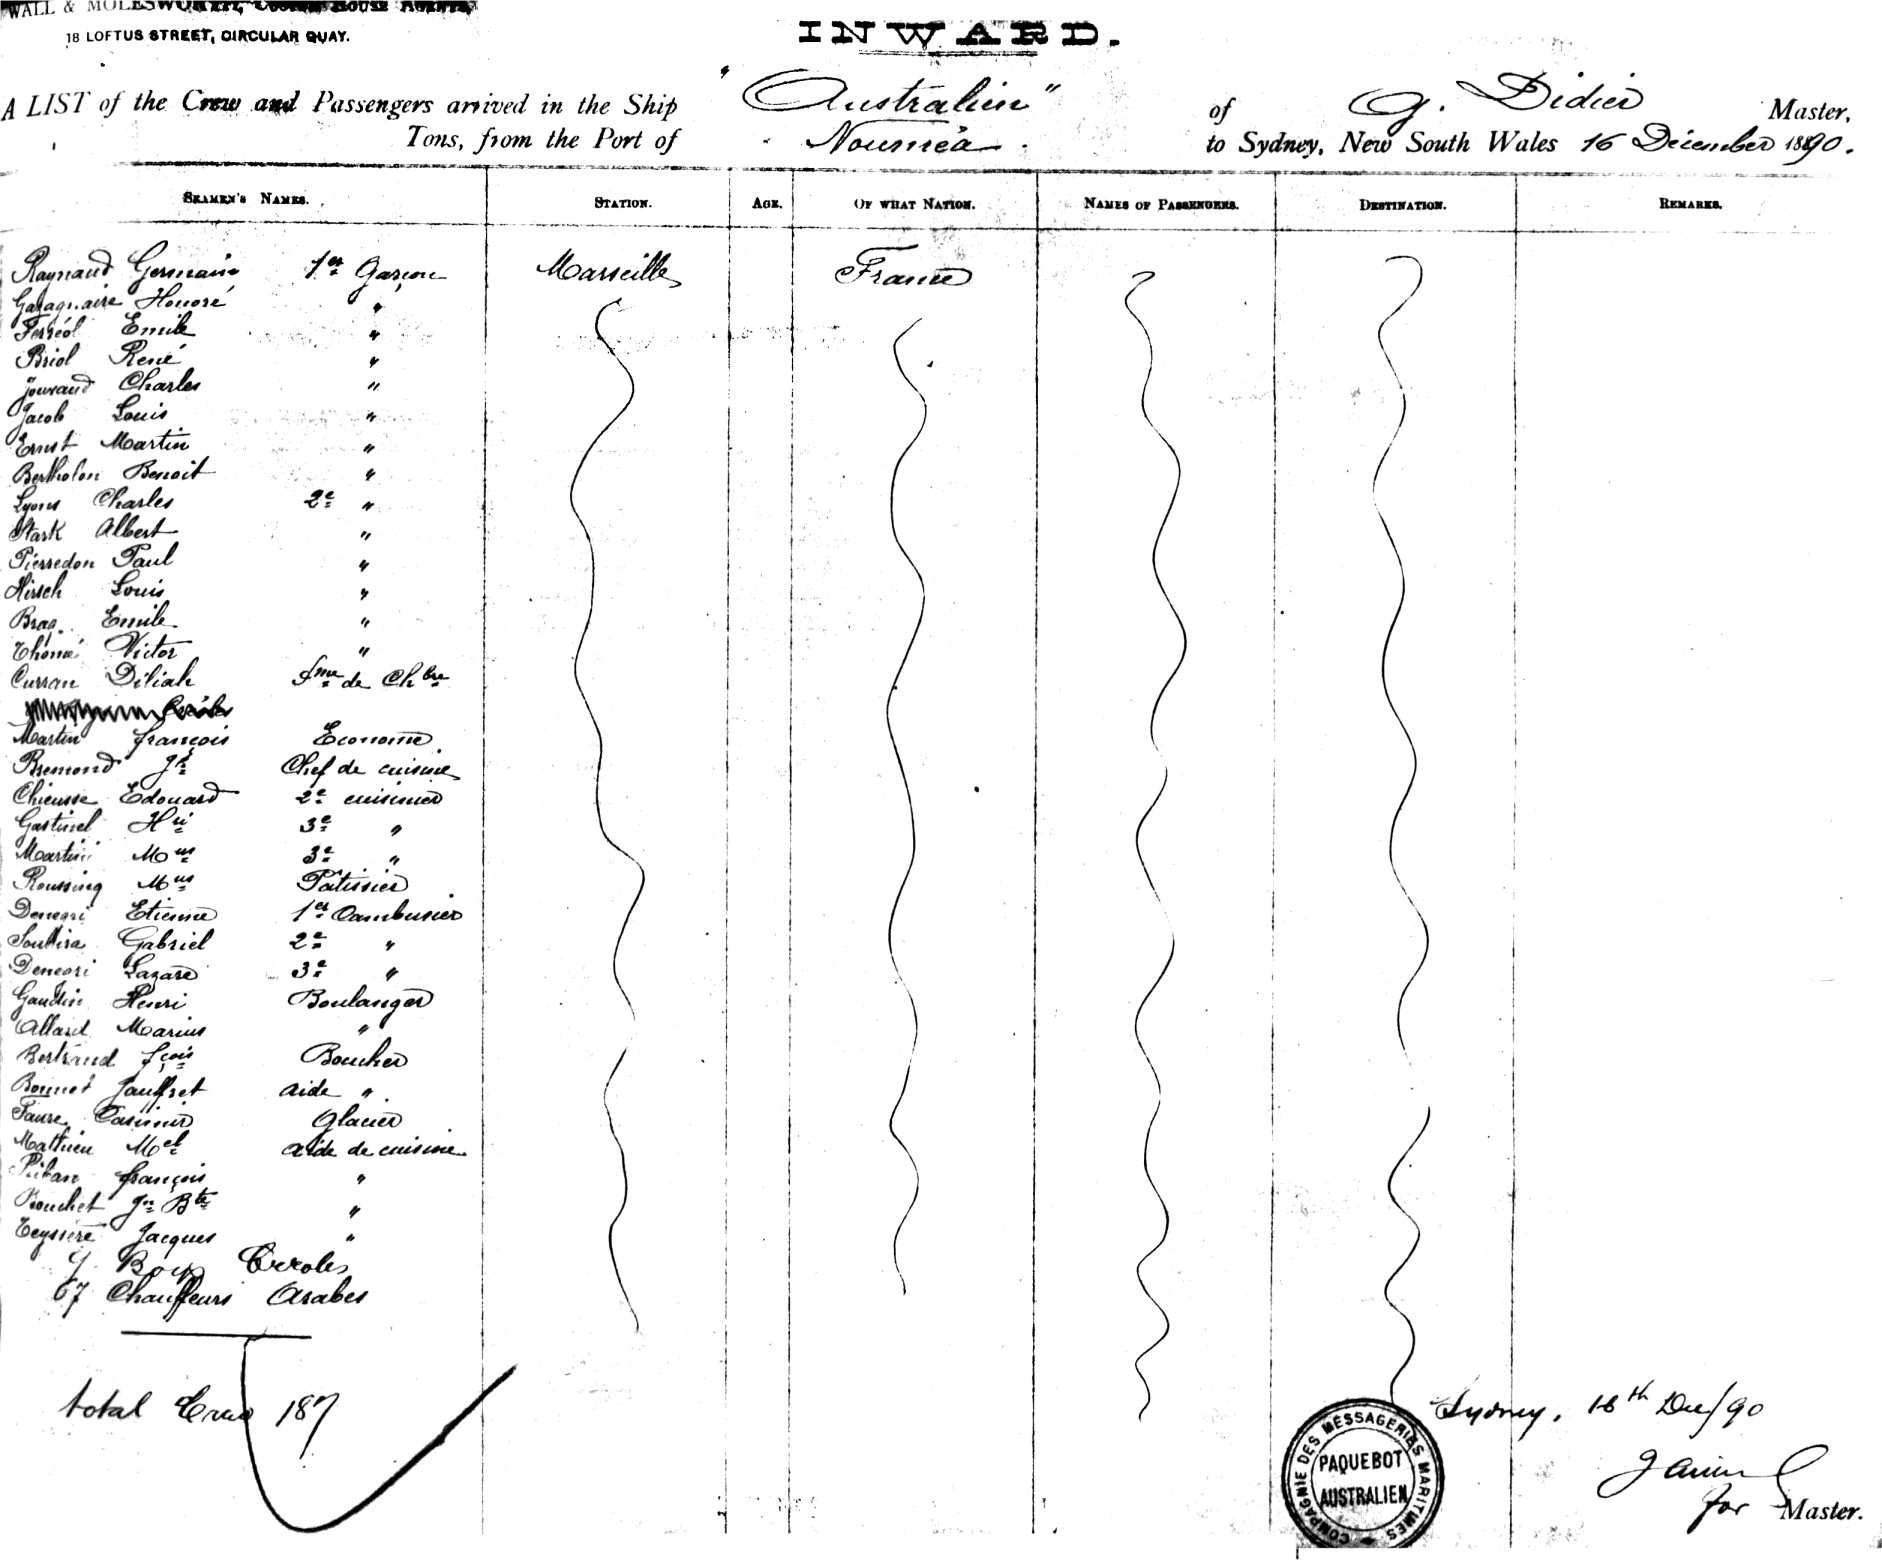 WALL & MOLESWORTH, CUSTOM HOUSE AGENTS,
18 LOFTUS STREET, CIRCULAR QUAY.
INWARD.
A LIST of the Crew and Passengers arrived in the Ship "Australien" of G. Didier Master,
Tons, from the Port of Nouméa to Sydney, New South Wales 16 Décember 1890.
SEAMEN'S NAMES. STATION. AGE. OF WHAT NATION. NAMES OF PASSENGERS. DESTINATION. REMARKS.
Raynaud Germain 1er Garçon Marseille France
Garagnaire Honoré "
Ferréol Emile "
Briol René "
Jouvaud Charles "
Jacob Louis "
Ernst Martin "
Bertholon Benoit "
Lyons Charles 2e "
Stark Albert "
Pierredon Paul "
Hirsch Louis "
Emile "
Thomé Victor "
Curran Diliah fme de Chbre
Martin françois Econome
Bremond Chef de cuisine
Chieusse Edouard 2e cuisinier
Gastinel Hri 3e "
Martin Mus 3e "
Roussing Mus Pâtissier
Denegri Etienne 1er Cambusier
Gabriel 2e "
Denegri Lazare 3e "
Gaudin Henri Boulanger
Allard Marius "
Bertrand fçois Boucher
Bonnet Jauffret aide "
Faure Casimir Glacier
Mathieu Mel aide de cuisine
françois "
Bouchet Jn Bte "
Teyssere Jacques "
9 Boys Créoles
67 Chauffeurs Arabes
total Crew 187
Sydney, 16th Dec/90
COMPAGNIE DES MESSAGERIES MARITIMES
PAQUEBOT
AUSTRALIEN
for Master.